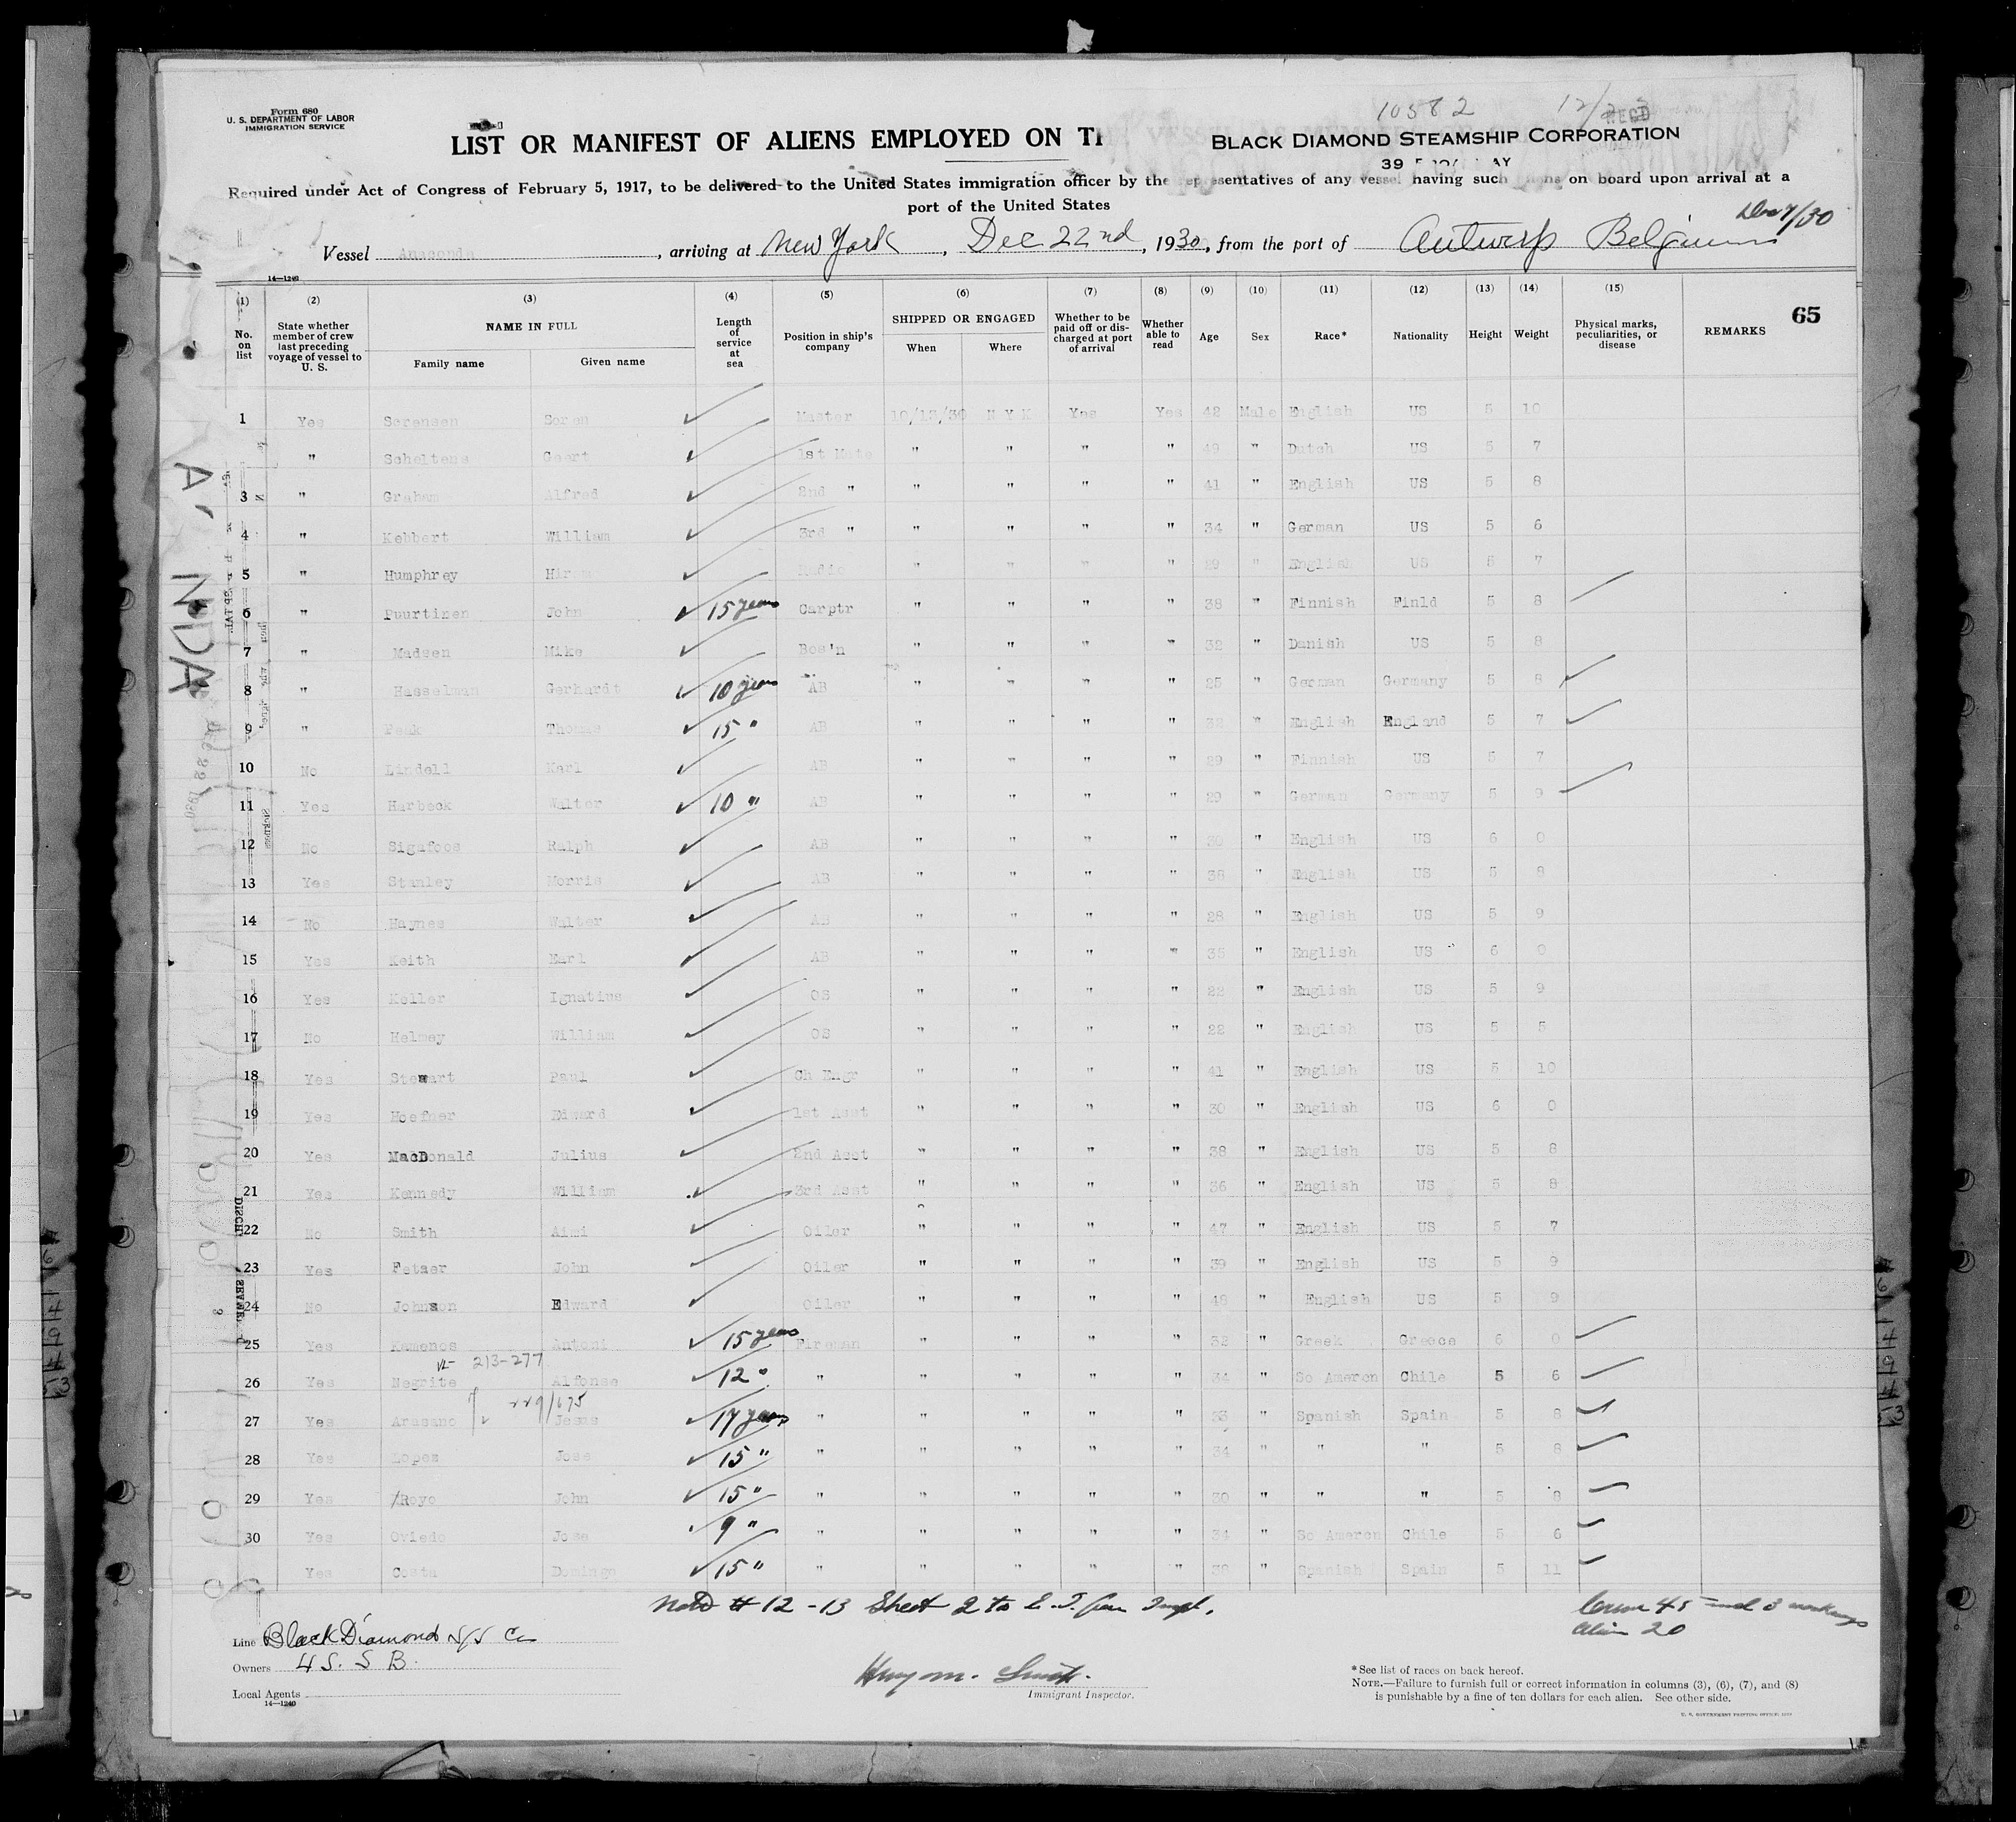 10582 12/23
RECD
Form 680
U. S. DEPARTMENT OF LABOR
IMMIGRATION SERVICE
LIST OR MANIFEST OF ALIENS EMPLOYED ON T
BLACK DIAMOND STEAMSHIP CORPORATION
39
Required under Act of Congress of February 5, 1917, to be delivered to the United States immigration officer by the representatives of any vessel having such aliens on board upon arrival at a
port of the United States
Dec 7/30
Vessel Anaconda, arriving at New York, Dec 22nd, 1930, from the port of Antwerp Belgium
14—1240
65
(1) No. on list
(2) State whether member of crew last preceding voyage of vessel to U. S.
(3) NAME IN FULL Family name Given name
(4) Length of service at sea
(5) Position in ship's company
(6) SHIPPED OR ENGAGED When Where
(7) Whether to be paid off or discharged at port of arrival
(8) Whether able to read
(9) Age
(10) Sex
(11) Race*
(12) Nationality
(13) Height
(14) Weight
(15) Physical marks, peculiarities, or disease
REMARKS
1 Yes Sorensen Soren Master 10/13/30 N Y K Yes Yes 42 Male English US 5 10
" Scheltens Geert 1st Mate " " " " 49 " Dutch US 5 7
3 " Graham Alfred 2nd " " " " " 41 " English US 5 8
4 " Kebbert William 3rd " " " " " 34 " German US 5 6
5 " Humphrey Radio " " " " 29 " English US 5 7
6 " Puurtinen John 15 years Carptr " " " " 38 " Finnish Finld 5 8
7 " Madsen Mike Bos'n " " " " 32 " Danish US 5 8
8 " Hasselman Gerhardt 10 years AB " " " " 25 " German Germany 5 8
9 " Peak Thomas 15 " AB " " " " 32 " English England 5 7
10 No Lindell Karl AB " " " " 29 " Finnish US 5 7
11 Yes Harbeck Walter 10 " AB " " " " 29 " German Germany 5 9
12 No Sigafoos Ralph AB " " " " 30 " English US 6 0
13 Yes Stanley Morris AB " " " " 38 " English US 5 8
14 No Haynes Walter AB " " " " 28 " English US 5 9
15 Yes Keith Earl AB " " " " 35 " English US 6 0
16 Yes Keller Ignatius OS " " " " 22 " English US 5 9
17 No Helmey William OS " " " " 22 " English US 5 5
18 Yes Stewart Paul Ch Engr " " " " 41 " English US 5 10
19 Yes Hoefner Edward 1st Asst " " " " 30 " English US 6 0
20 Yes MacDonald Julius 2nd Asst " " " " 38 " English US 5 8
21 Yes Kennedy William 3rd Asst " " " " 36 " English US 5 8
22 No Smith Aimi Oiler " " " " 47 " English US 5 7
23 Yes Fetzer John Oiler " " " " 39 " English US 5 9
24 No Johnson Edward Oiler " " " " 48 " English US 5 9
25 Yes Kamenos Antoni 15 years Fireman " " " " 32 " Greek Greece 6 0
VL- 213-277
26 Yes Negrite Alfonse 12 " " " " " " 34 " So Ameron Chile 5 6
229/675
27 Yes Arasano Jesus 17 years " " " " " 33 " Spanish Spain 5 8
28 Yes Lopez Jose 15 " " " " " " 34 " " " 5 8
29 Yes /Royo John 15 " " " " " " 30 " " " 5 8
30 Yes Oviedo Jose 9 " " " " " " 34 " So Ameron Chile 5 6
Yes Costa Domingo 15 " " " " " " 38 " Spanish Spain 5 11
Note # 12 - 13 Sheet 2 to E. I. for Inspt.
Crew 45 incl 3 workaways
Alien 20
Line Black Diamond S/S Co
Owners U S. S B.
Local Agents
14—1240
Henry M. Smith.
Immigrant Inspector.
*See list of races on back hereof.
NOTE.—Failure to furnish full or correct information in columns (3), (6), (7), and (8)
is punishable by a fine of ten dollars for each alien. See other side.